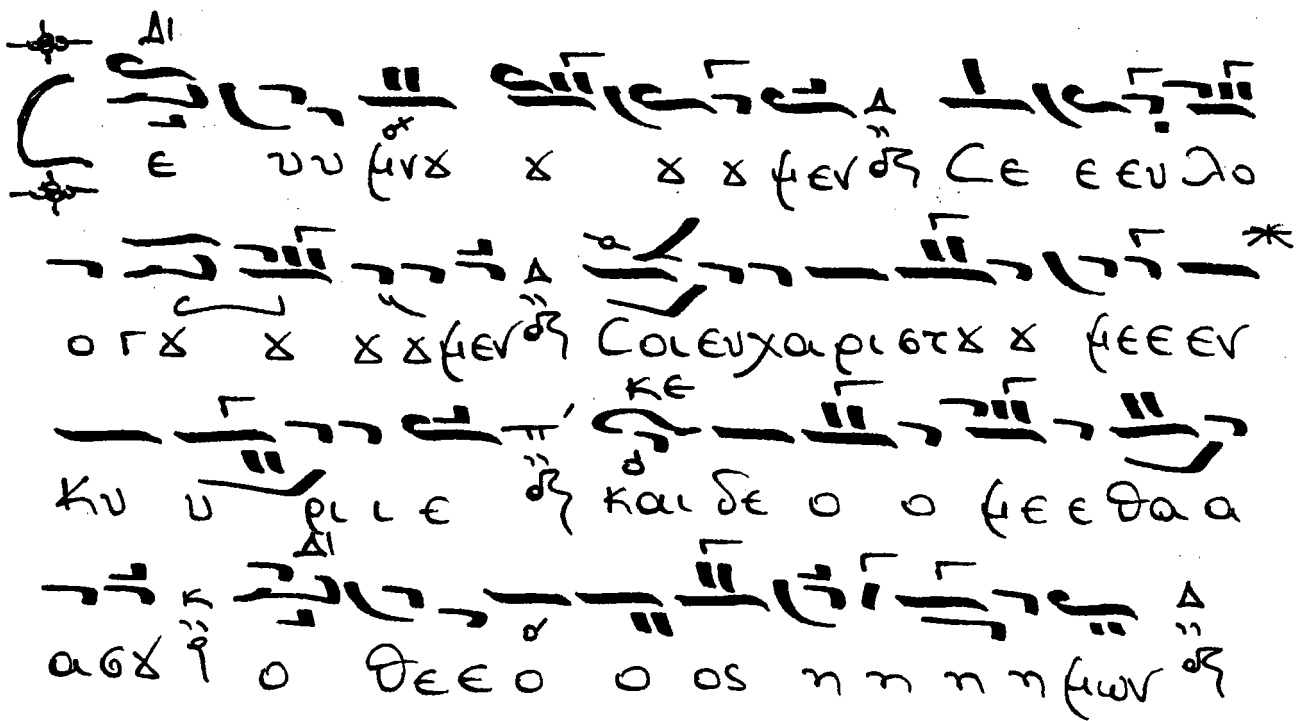 ΔΙ Δ
Ϲ ε υ υ μνȣ ȣ ȣ ȣ μεν Ϲε ε ευ λο
Δ
ο γȣ ȣ ȣ ȣ μεν Ϲοι ευχαριστȣ ȣ μεεεν
π' ΚΕ
Κυ υ ρι ι ε και δε ο ο με ε θα α
κ ΔΙ Δ
α σȣ ο Θε ε ο ο ος η η η η μων